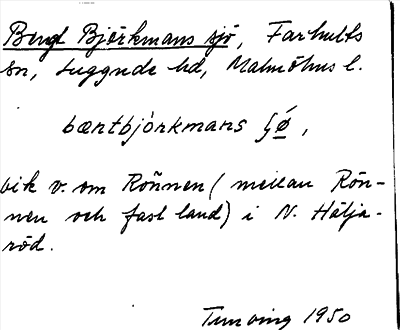 Bengt Björkmans sjö, Farhults
sn, Luggude hd, Malmöhus l.
bæntbjörkmans ʃö́,
vik v. om Rönnen (mellan Rön-
nen och fast land) i N. Hälja-
röd.
1950